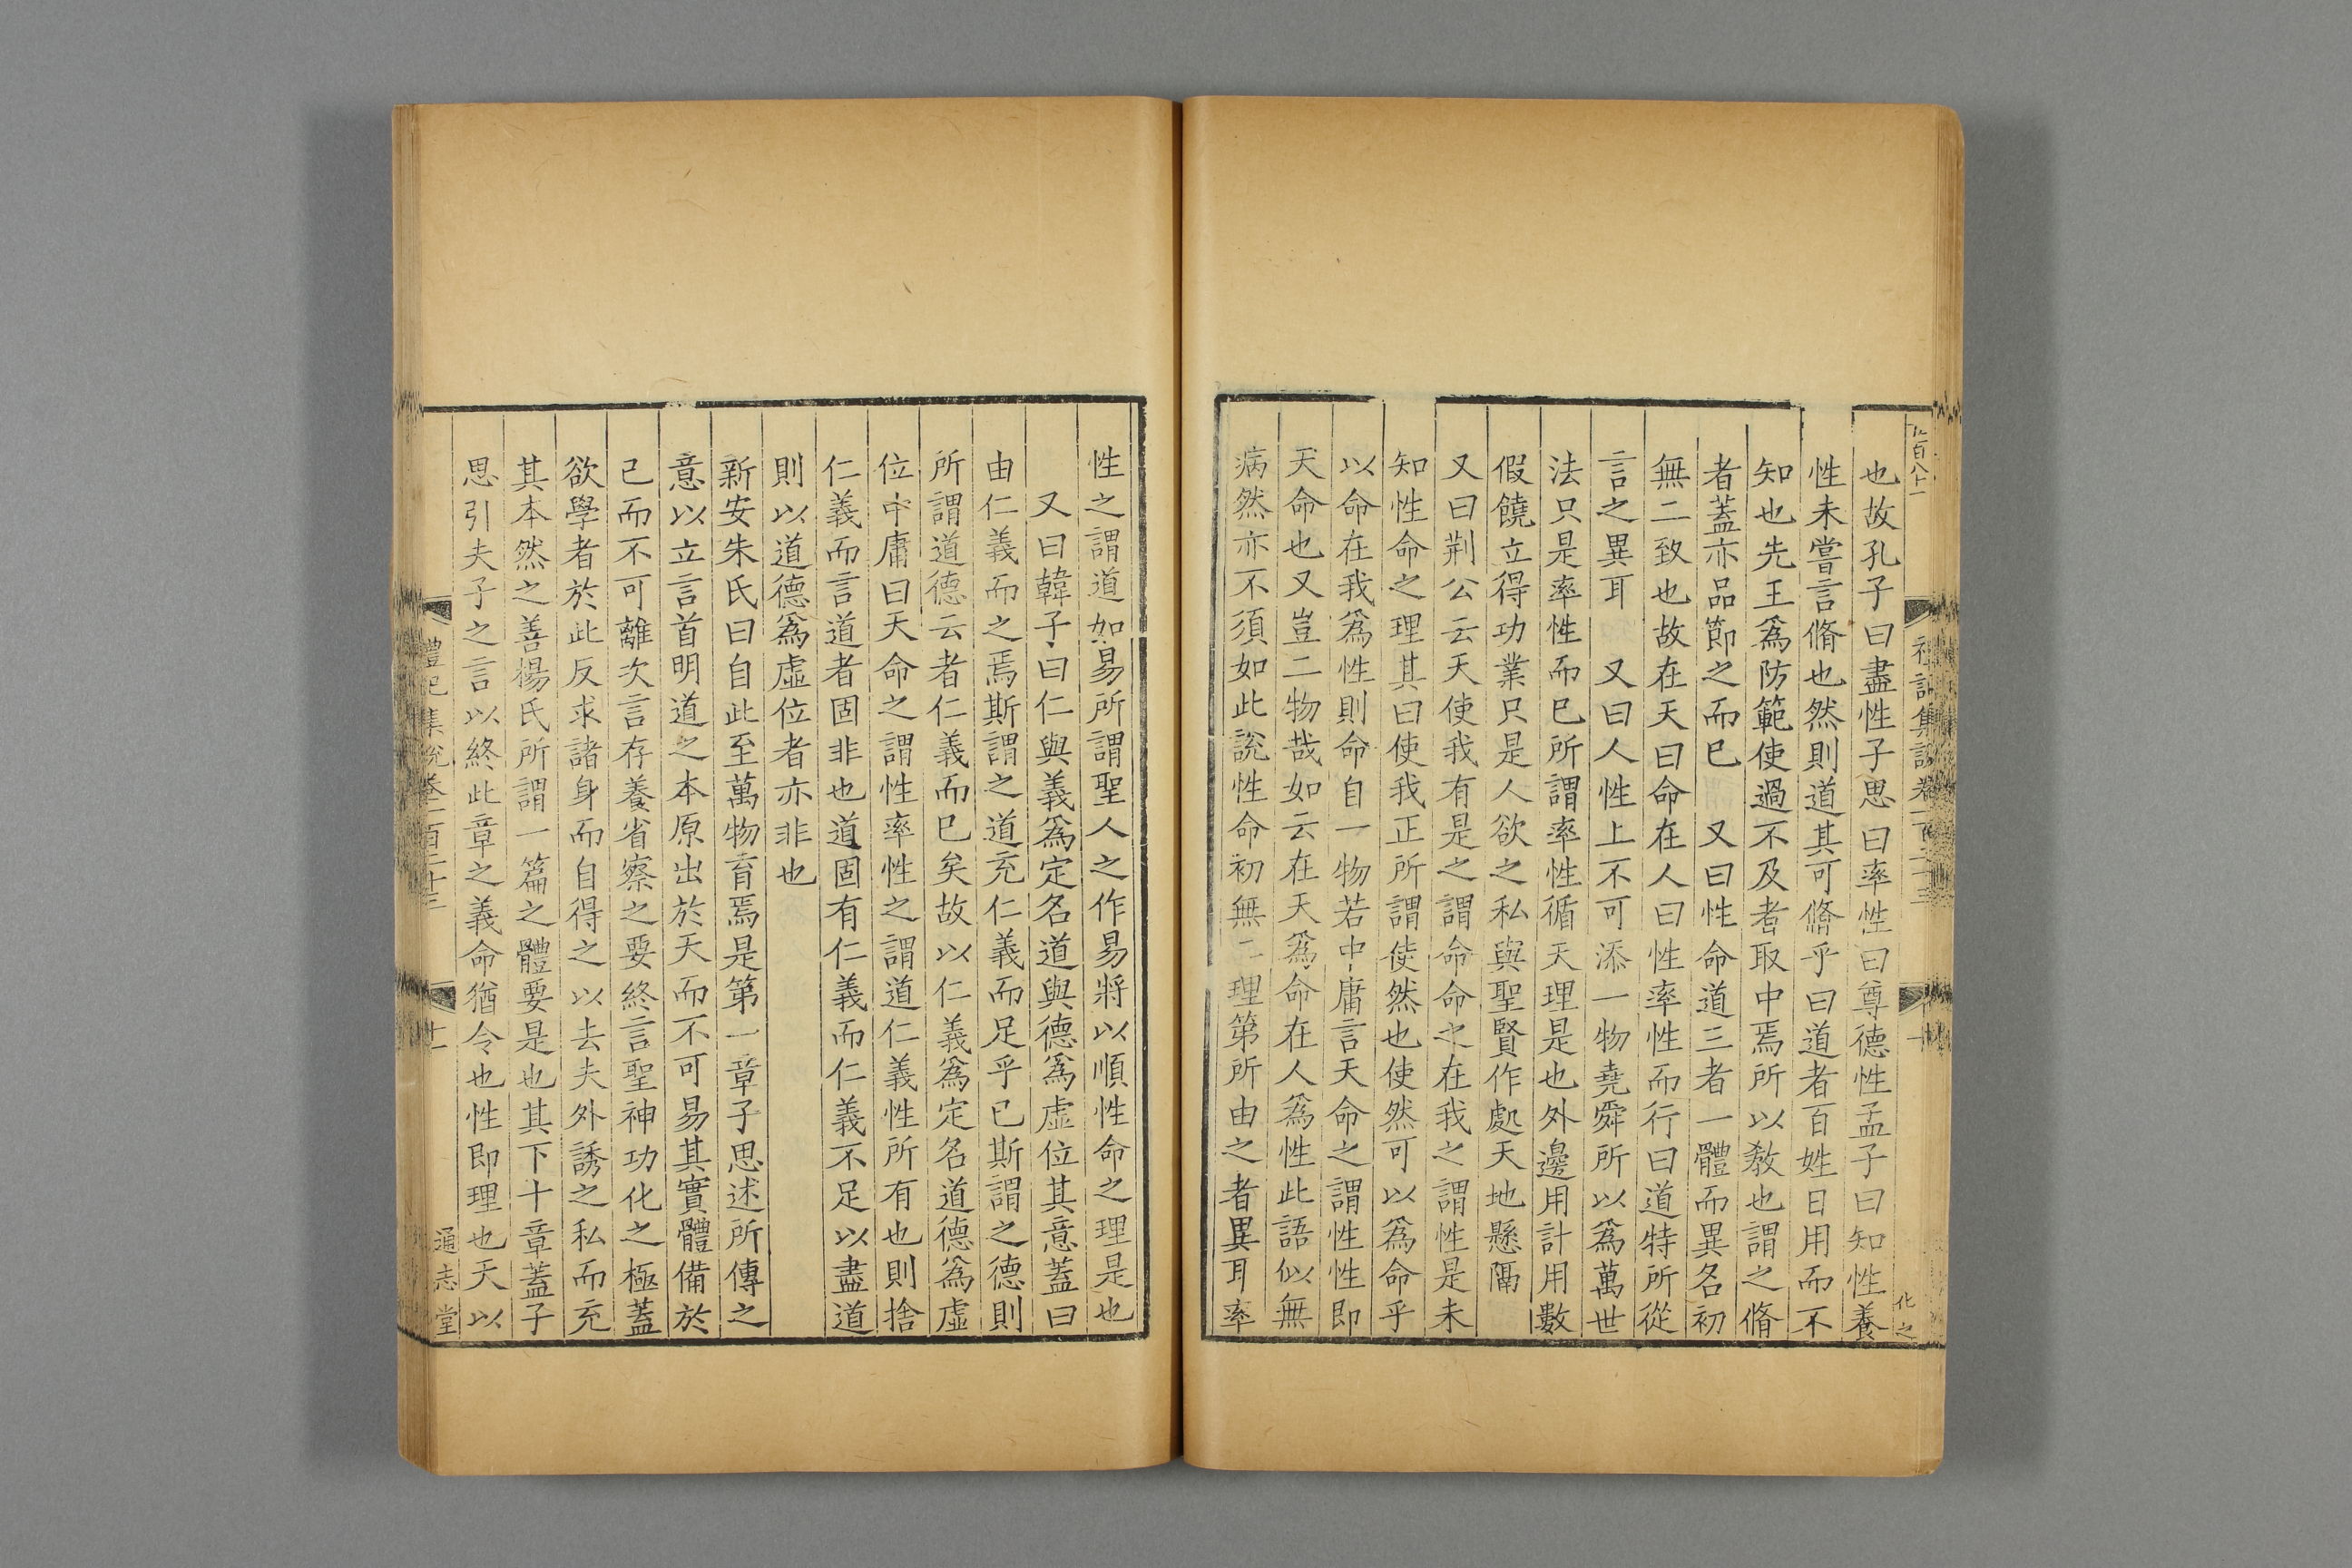 也故孔子曰盡性子思曰率性曰尊德性孟子曰知性養
性未嘗言脩也然則道其可脩乎曰道者百姓日用而不
知也先王爲防範使過不及者取中焉所以教也謂之脩
者蓋亦品節之而已　又曰性命道三者一體而異名初
無二致也故在天曰命在人曰性率性而行曰道特所從
言之異耳　又曰人性上不可添一物堯舜所以爲萬世
法只是率性而已所謂率性循天理是也外邊用計用數
假饒立得功業只是人欲之私與聖賢作處天地懸隔
又曰荆公云天使我有是之謂命命之在我之謂性是未
知性命之理其曰使我正所謂使然也使然可以爲命乎
以命在我爲性則命自一物若中庸言天命之謂性性即
天命也又豈二物哉如云在天爲命在人爲性此語似無
病然亦不須如此說性命初無二理第所由之者異耳率
化之
性之謂道如易所謂聖人之作易將以順性命之理是也
又曰韓子曰仁與義爲定名道與德爲虛位其意蓋曰
由仁義而之焉斯謂之道充仁義而足乎已斯謂之德則
所謂道德云者仁義而已矣故以仁義爲定名道德爲虛
位中庸曰天命之謂性率性之謂道仁義性所有也則捨
仁義而言道者固非也道固有仁義而仁義不足以盡道
則以道德爲虛位者亦非也
新安朱氏曰自此至萬物育焉是第一章子思述所傳之
意以立言首明道之本原出於天而不可易其實體備於
已而不可離次言存養省察之要終言聖神功化之極蓋
欲學者於此反求諸身而自得之以去夫外誘之私而充
其本然之善楊氏所謂一篇之體要是也其下十章蓋子
思引夫子之言以終此章之義命猶令也性即理也天以
禮記集說卷一百二十三
十一
通志堂